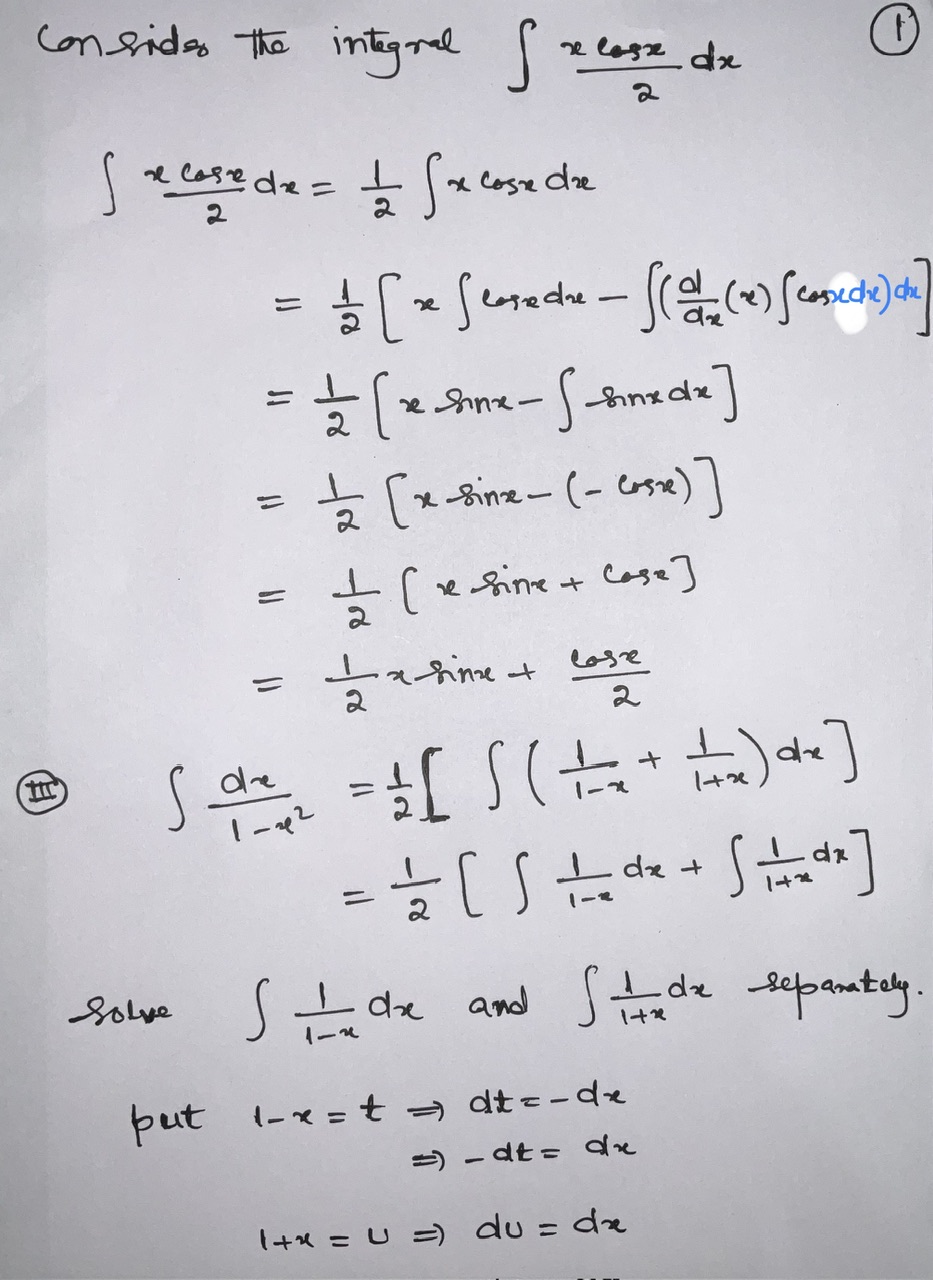 Consider the integral ∫ x cosx/2 dx ①
∫ x cosx/2 dx = 1/2 ∫ x cosx dx
= 1/2 [ x ∫ cosx dx − ∫(d/dx (x) ∫ cosx dx) dx ]
= 1/2 [ x sinx − ∫ sinx dx ]
= 1/2 [ x sinx − (− cosx) ]
= 1/2 [ x sinx + cosx ]
= 1/2 x sinx + cosx/2
(III) ∫ dx/1−x² = 1/2 [ ∫ ( 1/1−x + 1/1+x ) dx ]
= 1/2 [ ∫ 1/1−x dx + ∫ 1/1+x dx ]
Solve ∫ 1/1−x dx and ∫ 1/1+x dx separately.
put 1−x = t ⇒ dt = −dx
⇒ −dt = dx
1+x = u ⇒ du = dx